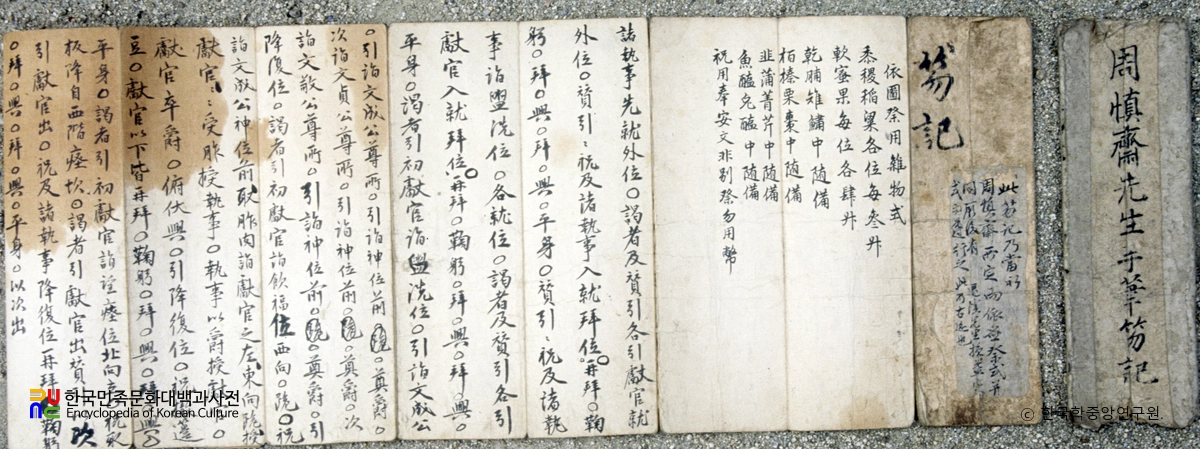 周愼齋先生手筆笏記
笏記
此笏記乃當初
周愼齋所定而依
依圖祭用雜物式
黍稷稻粱各位每叁升
軟蜜果每位各肆升
乾脯雉鱐中隨備
栢榛栗棗中隨備
韭蒲菁芹中隨備
魚醢兔醢中隨備
祝用奉安文非別祭勿用幣
諸執事先就外位○謁者及贊引各引獻官就
外位○贊引〻祝及諸執事入就拜位○再拜○鞠
躬○拜○興○拜○興○平身○贊引〻祝及諸執
事詣盥洗位○各就位○謁者及贊引各引
獻官入就拜位○再拜○鞠躬○拜○興○拜○興○
平身○謁者引初獻官詣盥洗位○引詣文成公
○引詣文成公尊所○引詣神位前○跪○奠爵○
次詣文貞公尊所○引詣神位前○跪○奠爵○次
詣文敬公尊所○引詣神位前○跪○奠爵○引
降復位○謁者引初獻官詣飮福位西向○跪○祝
詣文成公神位前取胙肉詣獻官之左東向跪授
獻官〻受胙授執事○執事以爵授獻官○
獻官卒爵○俯伏興○引降復位○祝
豆○獻官以下皆再拜○鞠躬○拜○興○拜○興○
平身○謁者引初獻官詣望瘞位北向立祝取
板降自西階瘞坎○謁者引獻官出贊引次
引獻官出○祝及諸執事降復位○再拜○鞠躬
○拜○興○拜○興○平身○以次出
한국민족문화대백과사전
Encyclopedia of Korean Culture
© 한국학중앙연구원